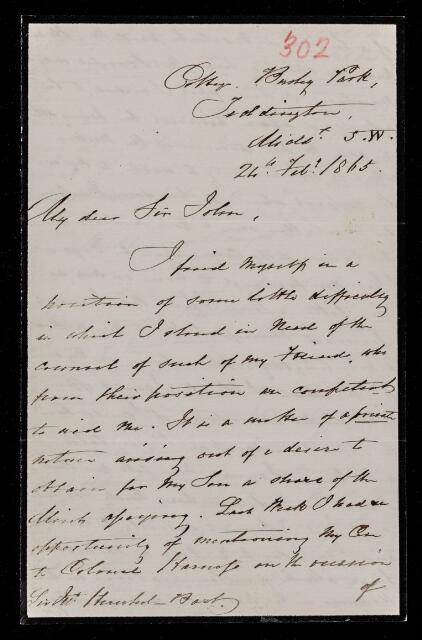 302
Cottage. Bushy Park,
Teddington,
Middx. S.W.
24th Feby. 1865.
My dear Sir John,
I find myself in a
position of some little difficulty
in which I stand in need of the
counsel of such of my Friends, who
from their position are competent
to aid me. It is a matter of a private
nature arising out of a desire to
obtain for my Son a share of the
opportunity of mentioning my
to Colonel on the occasion
of
Sir Jno. Herschel - Bart.